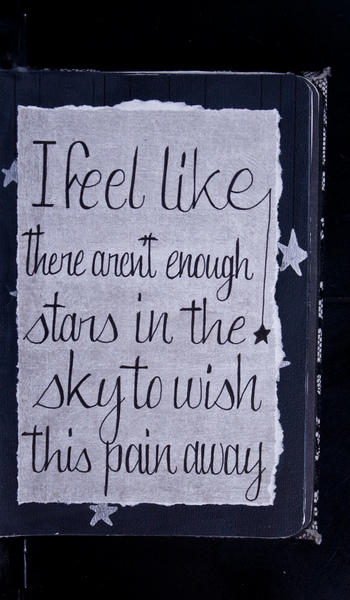 I feel like
there aren't enough
stars in the
sky to wish
this pain away